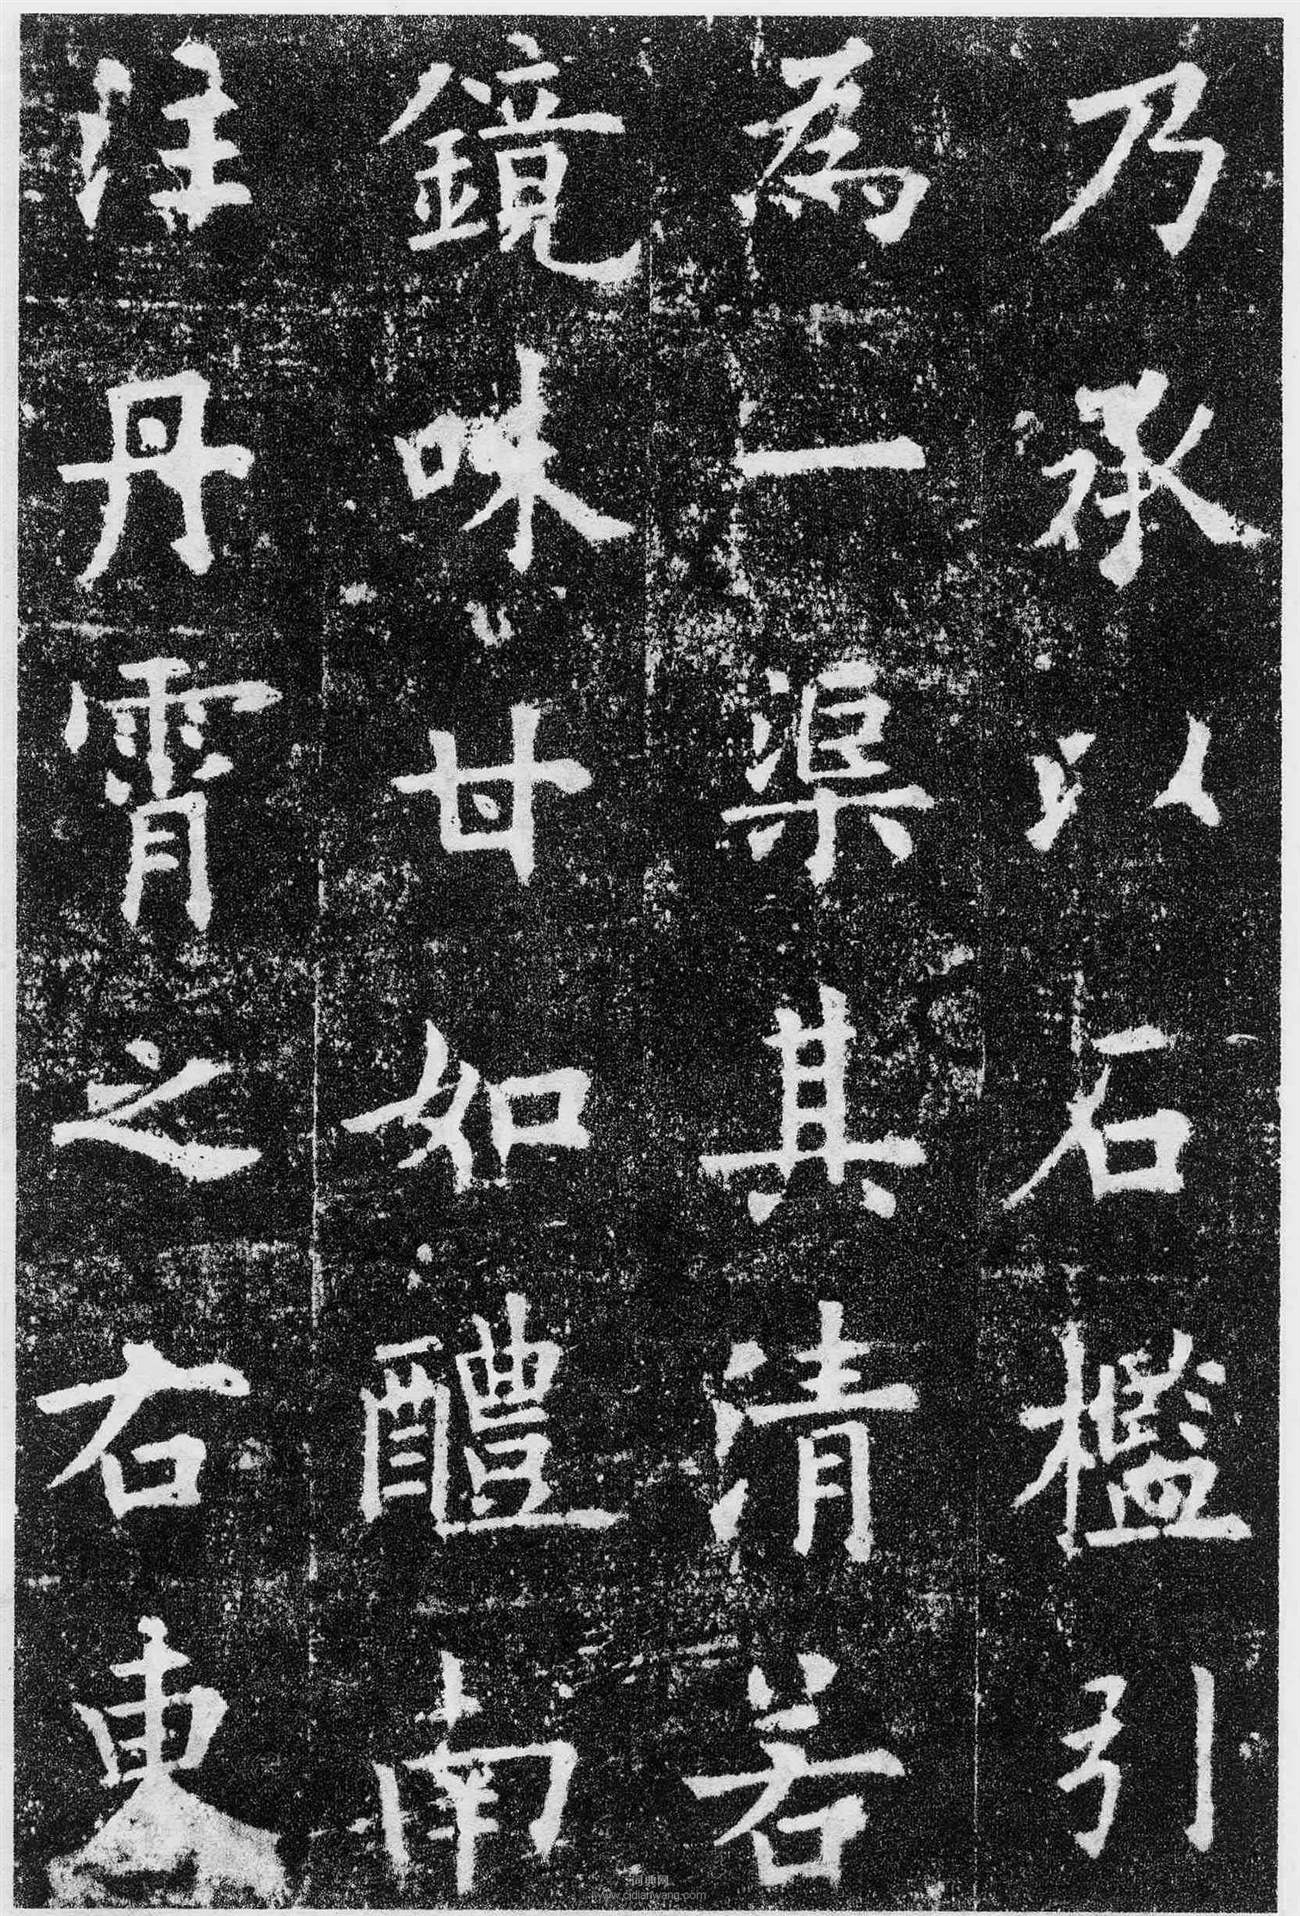 乃承以石檻引
為一渠其清若
鏡味甘如醴南
注丹霄之右東
词典网
www.cidianwang.com